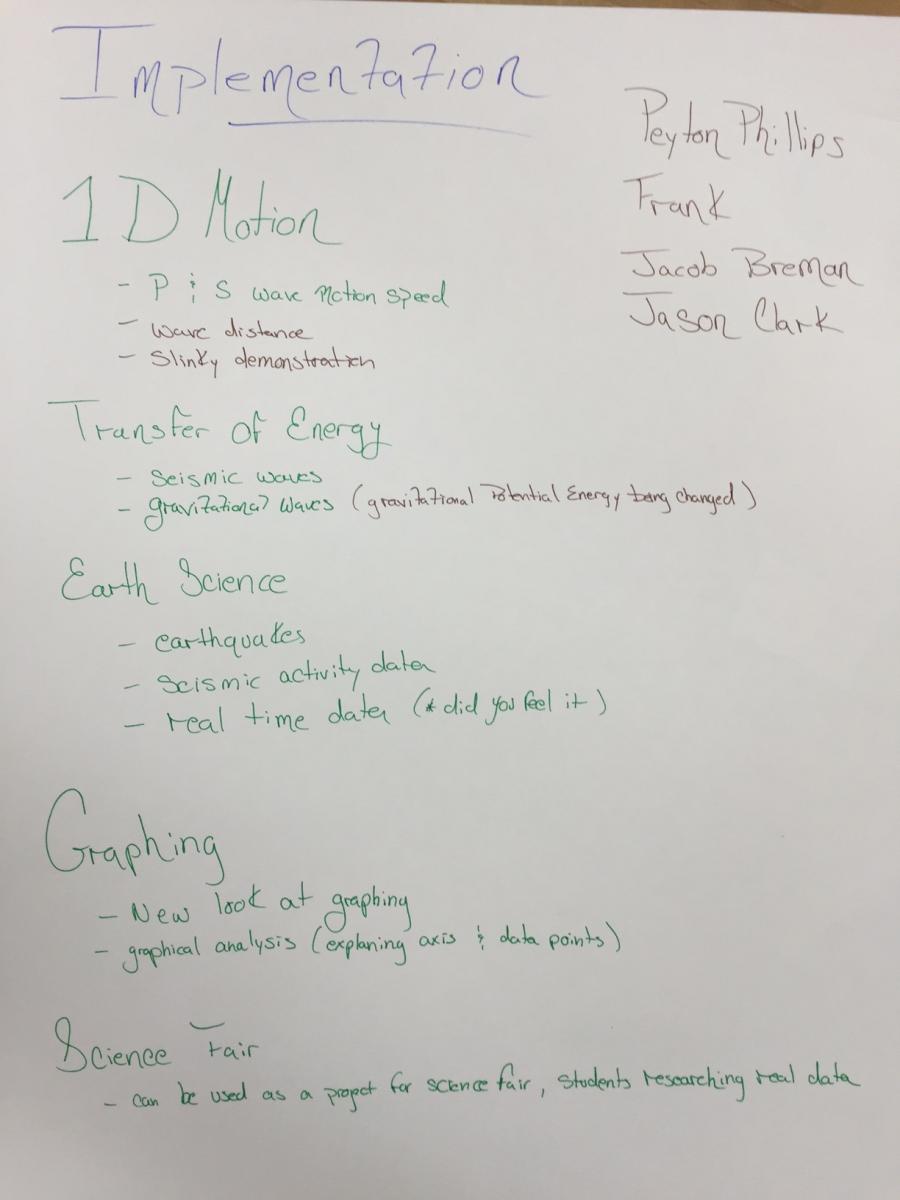 Implementation
Peyton Phillips
Frank
Jacob Breman
Jason Clark
1D Motion
- P & S wave Motion speed
- wave distance
- Slinky demonstration
Transfer of Energy
- Seismic waves
- gravitational waves (gravitational Potential Energy being changed)
Earth Science
- earthquakes
- Seismic activity data
- real time data (* did you feel it)
Graphing
- New look at graphing
- graphical analysis (explaning axis & data points)
Science Fair
- can be used as a project for science fair, students researching real data